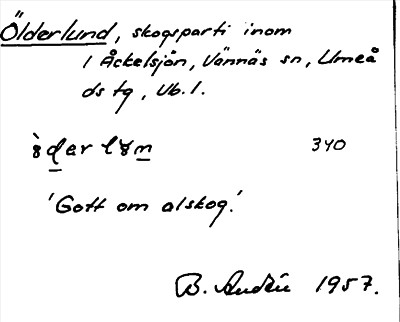 Ölderlund, skogsparti inom
1 Åckelsjön, Vännäs sn, Umeå
ds tg, Vb.l.
340
'Gott om alskog.'
B. 1957.